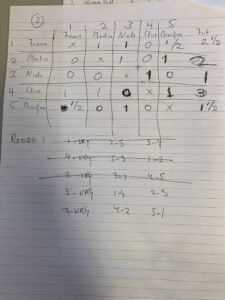 2
1 2 3 4 5
Frans Martin Node Chris Tot
1 Frans x 1 1 0 1/2 2 1/2
2 Martin 0 x 1 0 1 2
3 Node 0 0 x 1 0 1
4 Chris 1 1 0 x 1 3
5 1/2 0 1 0 x 1 1/2
RONDE 1 1-VRY 2-5 3-4
4-VRY 5-3 1-2
2-VRY 3-1 4-5
5-VRY 1-4 2-3
3-VRY 4-2 5-1